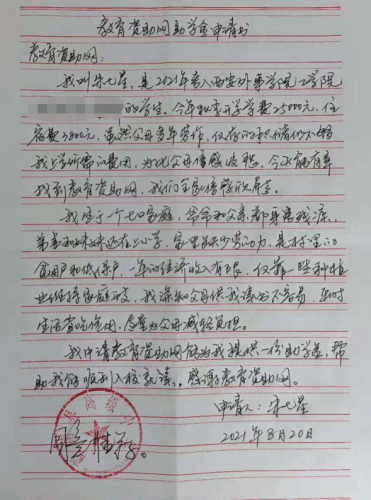 教育资助网助学金申请书
教育资助网:
我叫宋七星,是2021年考入西安外事学院工学院
的学生。今年秋季开学学费25000元,住
宿费3800元,虽然父母多年劳作,仅存的积蓄仍不够
我上学所需的费用,为此父母倍感疲惫,今天能有幸
找到教育资助网,我们全家倍感欣慰。
我生于一个七口家庭,爷爷和父亲都身患残疾,
弟弟和妹妹还在上小学,家里缺少劳动力,是村里的
贫困户和低保户,一年的经济收入有限,仅靠一些种植
业维持家庭开支,我深知父母供我读书不容易,平时
生活省吃俭用,尽量为父母减轻负担。
我申请教育资助网能为我提供一份助学金,帮
助我能顺利入校就读,感谢教育资助网。
申请人:宋七星
2021年8月20日